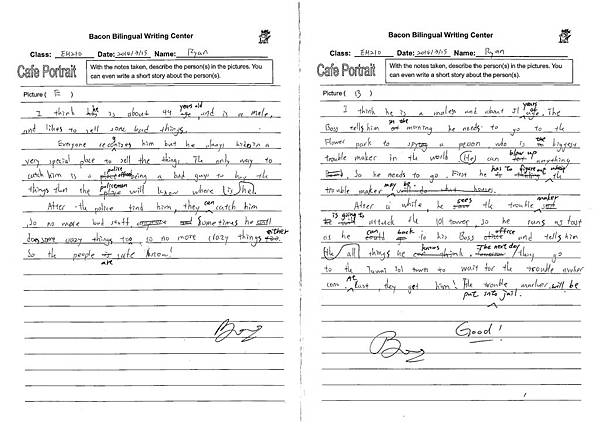 Bacon Bilingual Writing Center
Class: EH210 Date: 2014/9/15 Name: Ryan
Cafe Portrait
With the notes taken, describe the person(s) in the pictures. You
can even write a short story about the person(s).
Picture ( E )
I think he is about 44 years old, and is a male,
and likes to sell some bad things.
Everyone recognizes him but he always hides in a
very special place to sell the thing. The only way to
catch him is a police being a bad guys to buy the
things that the policeman will know where is he.
After the police find him, they can catch him
so no more bad stuff, and sometimes he still
does some crazy things too, so no more crazy things either
So the people are safe know!
Bacon Bilingual Writing Center
Class: EH210 Date: 2014/9/15 Name: Ryan
Cafe Portrait
With the notes taken, describe the person(s) in the pictures. You
can even write a short story about the person(s).
Picture ( B )
I think he is a male and about 51 years of age. The
Boss tells him in the morning he needs to go to the
Flower park to spy a person who is the biggest
trouble maker in the world. He can blow up anything
, So he needs to go. First he has to figure out what the
trouble maker may be.
After a while he sees the trouble maker
is going to attack the 101 tower, so he runs as fast
as he can back to his Boss office and tells him
all things he knows. The next day, they go
to the 101 tower to wait for the trouble maker
At last, they get him! The trouble marker will be
put into jail.
Good!